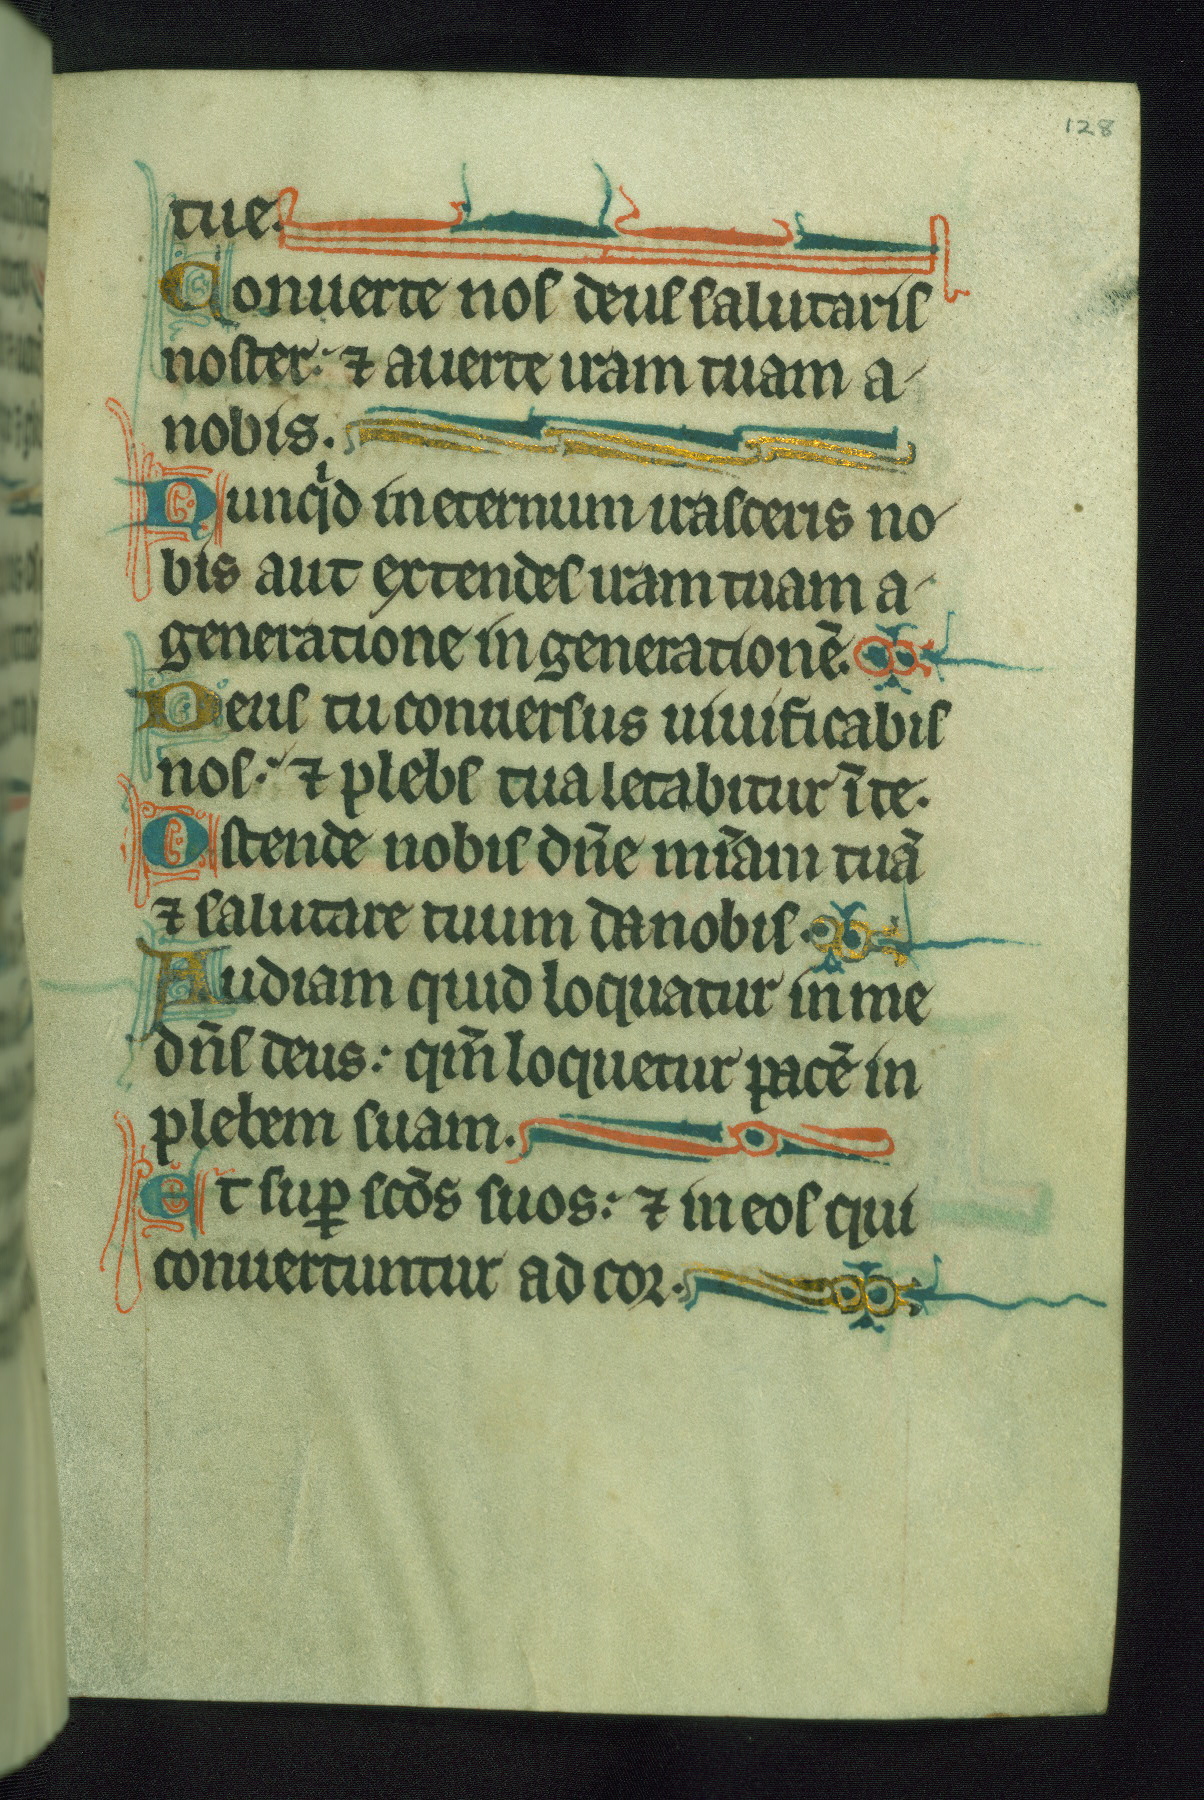 128
tue.
Conuerte nos deus salutaris
noster: ⁊ auerte iram tuam a
nobis.
Nunqͥd in eternum irasceris no
bis aut extendes iram tuam a
generatione in generationē.
Deus tu conuersus uiuificabis
nos: ⁊ plebs tua letabitur ī te.
Ostende nobis dn̄e mīam tuā
⁊ salutare tuum da nobis.
Audiam quid loquatur in me
dn̄s deus: qm̄ loquetur pacē in
plebem suam.
Et suꝑ scōs suos: ⁊ in eos qui
conuertuntur ad cor.